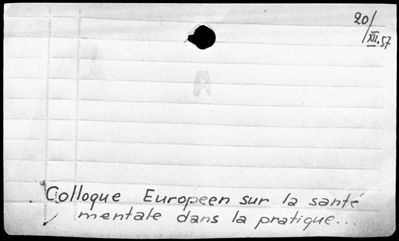 20/
XII.57
A
Colloque Europeen sur la santé
mentale dans la pratique...